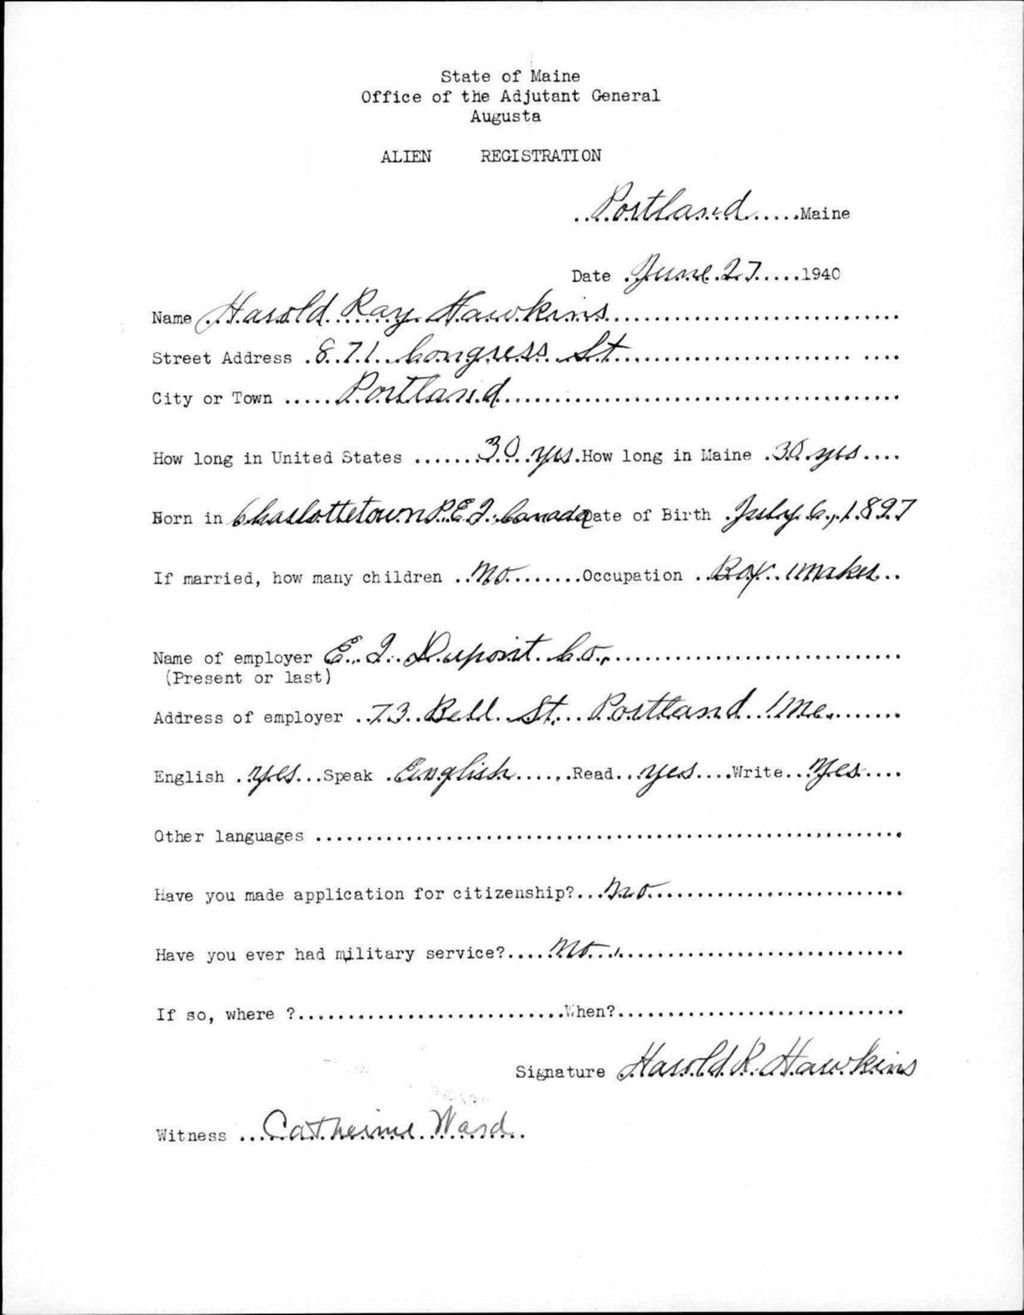 State of Maine
Office of the Adjutant General
Augusta
ALIEN REGISTRATION
Portland Maine
Date June 27 1940
Name Harold Ray Hawkins
Street Address 871 Congress St
City or Town Portland
How long in United States 30 yrs. How long in Maine 30 yrs
Born in Charlottetown P.E.I. Canada Date of Birth July 6, 1897
If married, how many children No Occupation Box maker
Name of employer E. I. Dupont Co.
(Present or last)
Address of employer 73 Bell St. Portland Me.
English yes Speak English Read yes Write Yes
Other languages
Have you made application for citizenship? No
Have you ever had military service? No
If so, where ? When?
Signature Harold R. Hawkins
Witness Catherine Ward